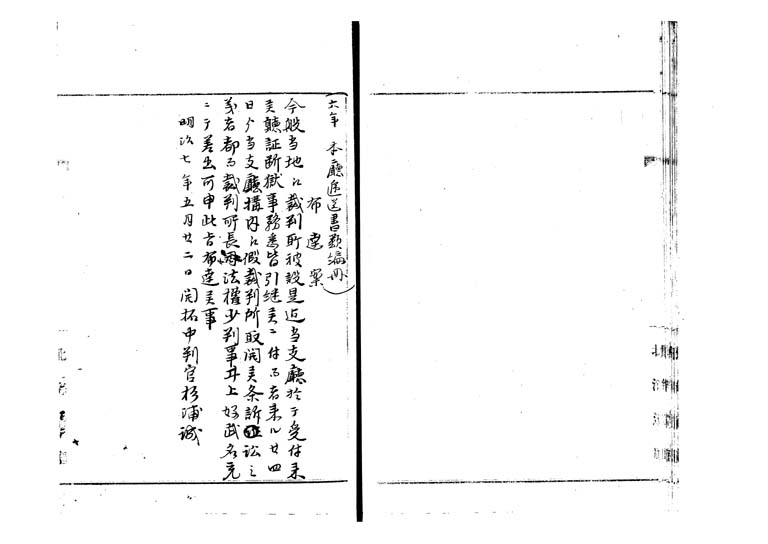 六年 本廳往送書類編冊
布達案
今般当地ニ裁判所被設是迄当支廳於テ受付来
候聽訟断獄事務悉皆引継候ニ付而者来ル廿四
日ヨリ当支廳構内ニ假裁判所取開候条訴訟之
義者都而裁判所長権少判事井上好武名宛
ニテ差出可申此旨布達候事
明治七年五月廿二日 開拓中判官杉浦誠